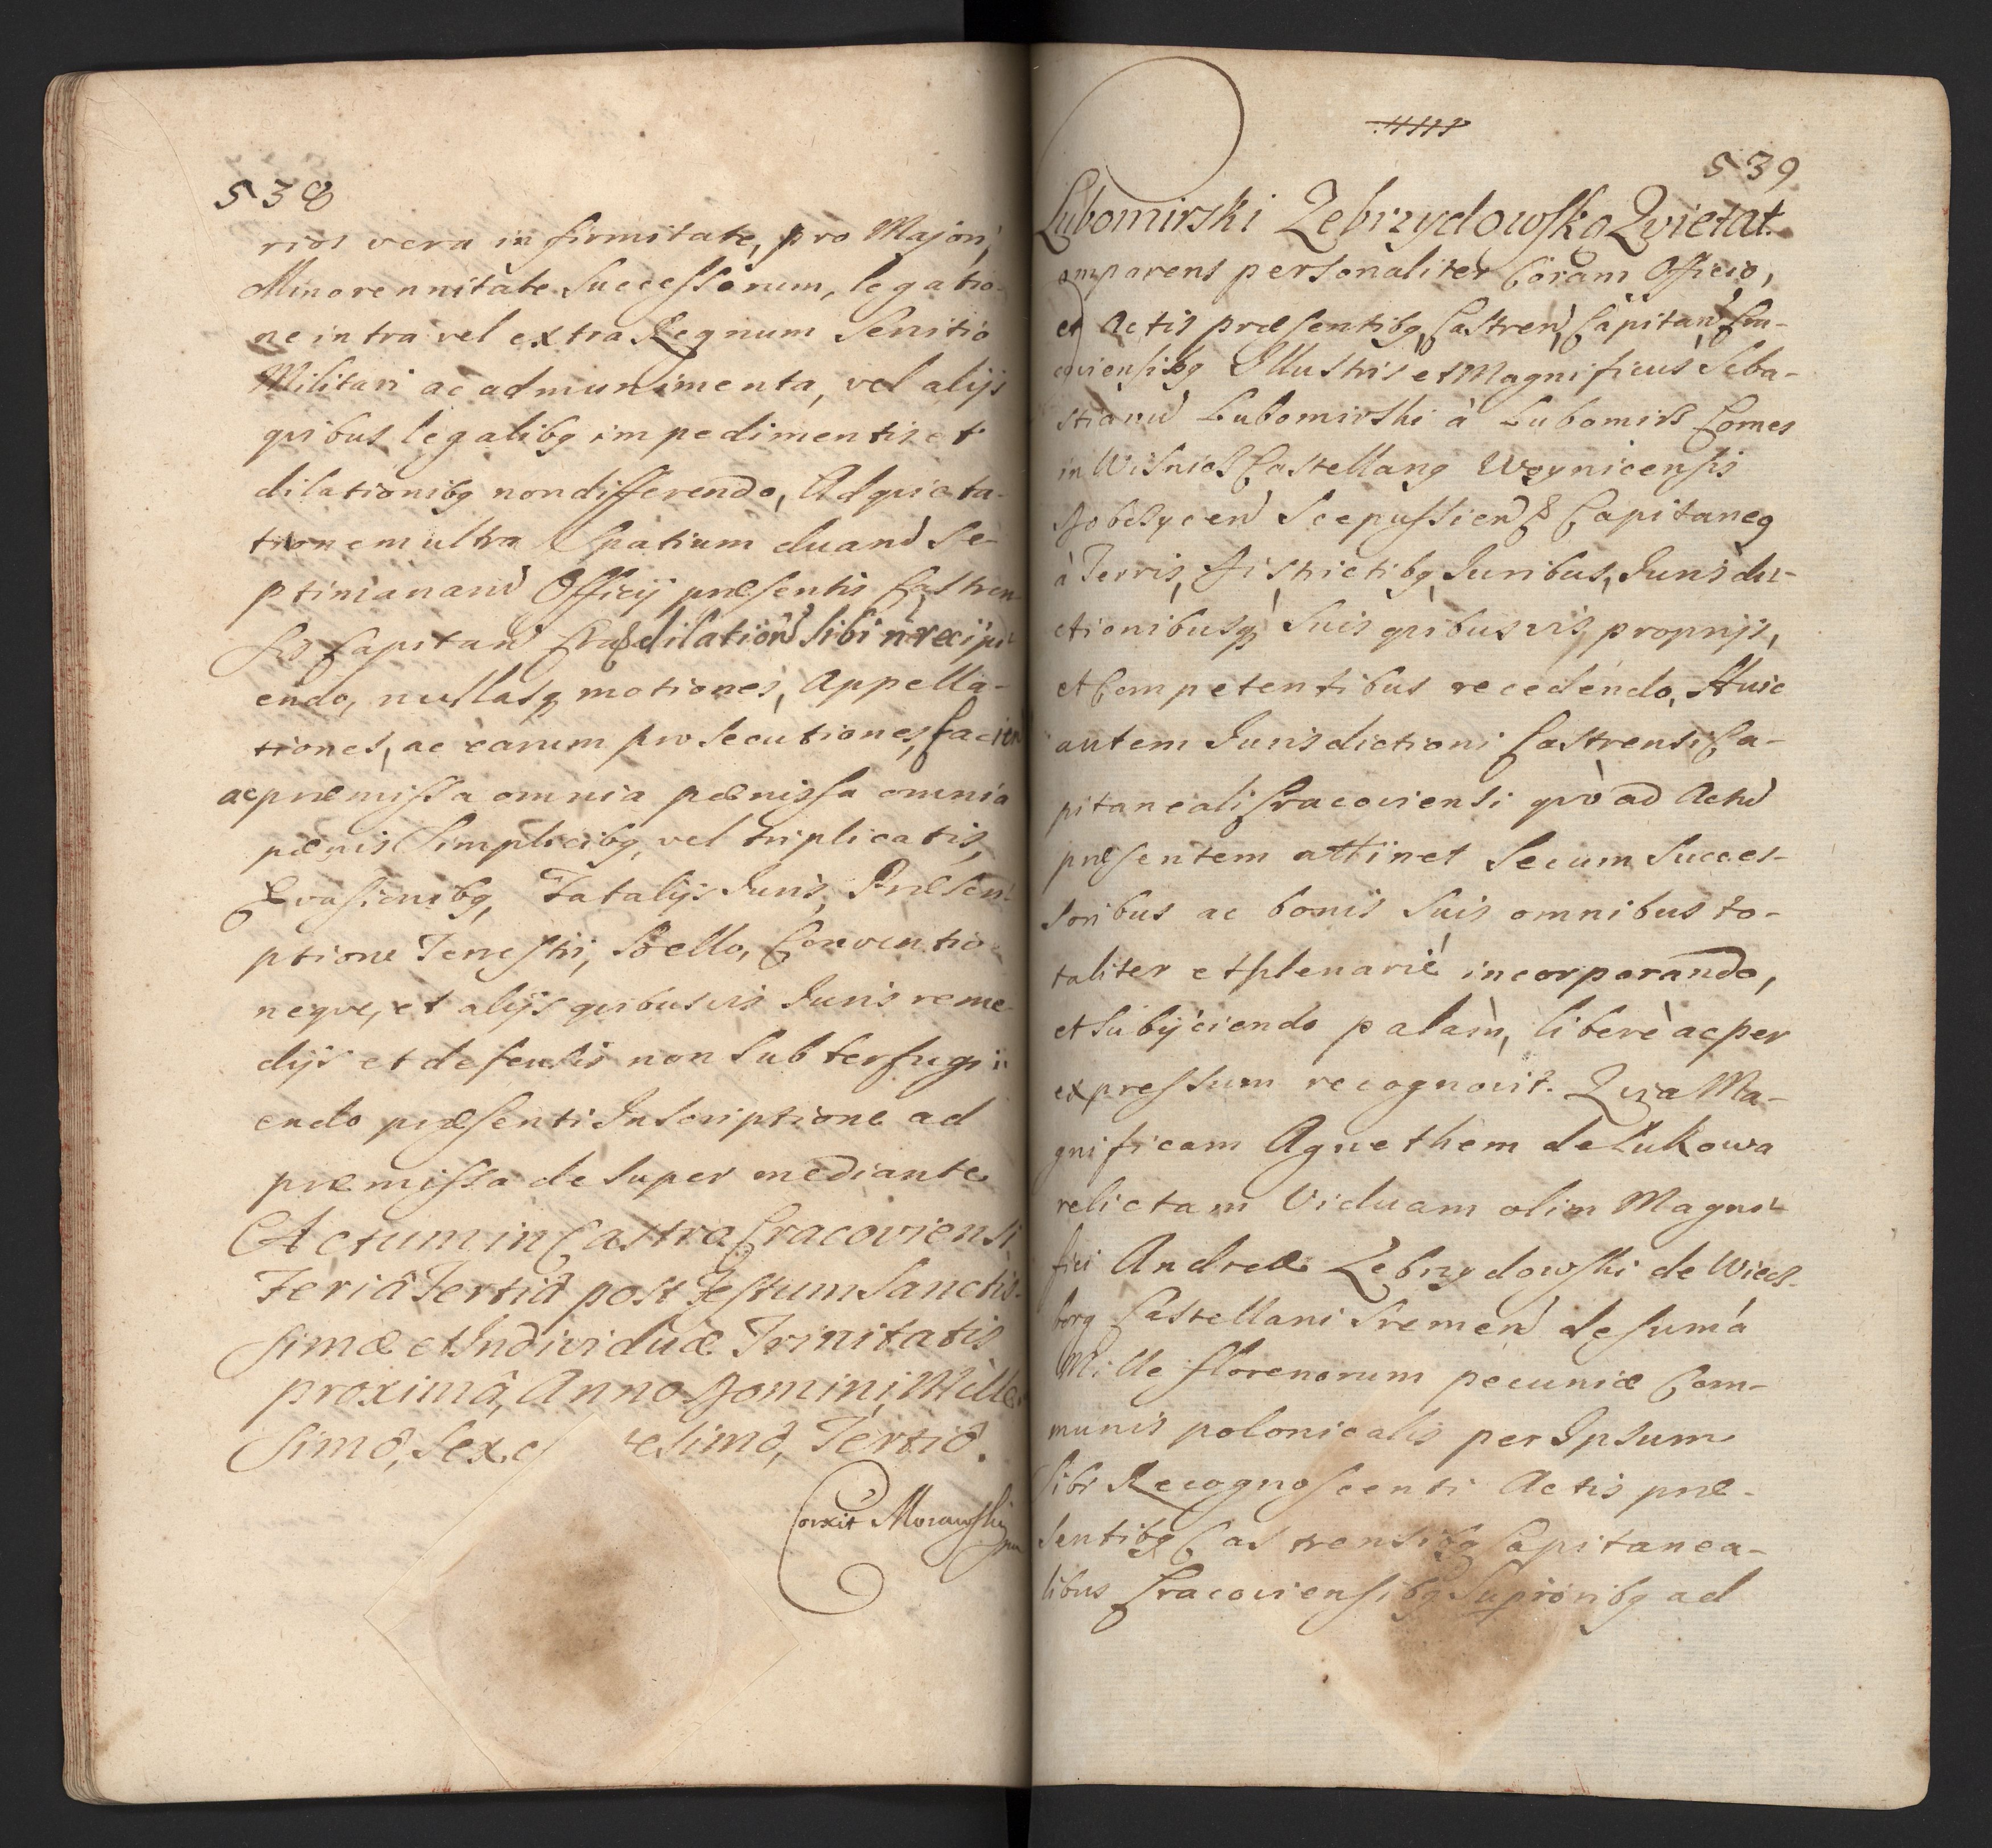 538
rior vera infirmitate, pro Majori,
Minorennitate Successorum, legatio-
ne intra vel extra Regnum Servitio
Militari ac admunimenta, vel alijs
quibus legalibq impedimentis et
dilationibq non differendo, Ad quieta-
tionem ultra Spatium duarū Se-
ptimanarū Officij præsentis Castren
Capitan Cra dilationē sibi n̄ recipi-
endo, nullasq motiones, Appella-
tiones, ac earum prosecutiones, facien
ac præmissa omnia pænissa omnia
pænis Simplicibq, vel triplicatis,
Evasionibq, Fatalijs Juris, Præscri-
ptione Terrestri, Bello, Conventio-
neque, et alijs quibusvis Juris reme-
dijs et defensis non Subterfugi
endo præsenti Inscriptione ad
præmissa desuper mediante
Actum in Castro Cracoviensi
Feriâ Tertiâ post Festum Sanctis-
simæ et Individuæ Trinitatis
proximâ, Anno Domini Mille-
simô, Sexc esimô, Tertiô.
Correxit Morawski
539
Lubomirski Zebrzydowska Qvietat.
omparens personaliter Coram Officio,
et Actis præsentibq Castren Capitan Cra-
coviensibq Illustris et Magnificus Seba-
stianū Lubomirski à Lubomirz Comes
in Wisnicz Castellanq Woynicensis
Dobczycen Scepussien & Capitaneq
à Terris, Districtibq, Juribus, Jurisdi-
ctionibusq Suis quibusvis, proprijs,
et Competentibus recedendo, Huic
autem Jurisdictioni Castrensi Ca-
pitaneali Cracoviensi quò ad Actū
præsentem attinet Secum Succes-
soribus ac bonis Suis omnibus to-
taliter et plenariè incorporando,
et Subijciendo palàm, liberè ac per
expressum recognovit. Quia Ma-
gnificam Agnethem de Lukowa
relictam Viduam olim Magni-
fici Andreæ Zebrzydowski de Wiecz-
borg Castellani Sremen de sumâ
Mille florenorum pecuniæ Com-
munis polonicalis per Ipsum
Sibi Recognoscenti Actis præ-
sentibq Castrensibq Capitanea-
libus Cracoviensibq Supiōribq ad